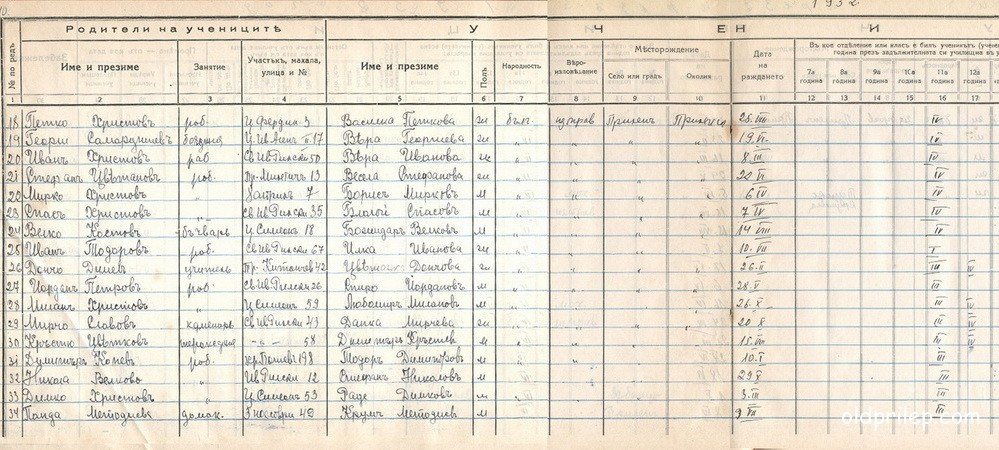 1932
Родители на учениците У Ч Е Н И
№ по редъ Име и презиме Занятие Участъкъ, махала, улица и № Име и презиме Полъ Народность Вѣроизповѣдание Мѣсторождение Село или градъ Околия Дата на раждането
Въ кое отдѣление или класъ е билъ ученикътъ
година презъ задължителната си училищна въ
7а година 8а година 9а година 10а година 11а година 12а година
1 2 3 4 5 6 7 8 9 10 11 12 13 14 15 16 17
18 Петко Христовъ раб. Ц. Фердин. 5 Василка Петкова ж бълг. изправ Прилепъ Прилепъ 25.VIII IV
19 Георги ж " " " " 19.VI. IV
20 Иванъ Христовъ раб Св Ив Рилски 50 Вѣра Иванова ж " " " " 8.III IV
21 Стефанъ Цвѣтановъ раб. 13 Весела Стефанова ж " " " " 22 VI IV
22 Мирко Христовъ " 7 Борисъ Мирковъ м " " " " 6 IV IV
23 Спасъ Христовъ " Св Ив Рилски 35 Благой Спасовъ м " " " " 7 IV IV
24 Велко Костовъ бъчваръ Ц. Симеонъ 18 Божидаръ Велковъ м " " " " 14 VIII IV
25 Иванъ Тодоровъ раб. Св Ив Рилски 67 Илка Иванова ж " " " " 10. VII I
26 Дончо Дилевъ учитель 42 Дончова ж " " " " 26.II III IV
27 Йорданъ Петровъ раб Св. Ив. Рилски 26 Спиро Йордановъ м " " " " 28.X III
28 Миланъ Христовъ " Ц Симеонъ 59 Любомиръ Милановъ м " " " " 26. X III IV
29 Мирчо Славовъ каменаръ Св Ив Рилски 43 Данка Мирчева ж " " " " 20 X III IV
30 Кръстю Цвѣтковъ - " - 58 Димитъръ Кръстевъ м " " " " 15. VIII III IV
31 Димитъръ Колевъ раб. 198 Тодоръ Димитровъ м " " " " 10.I III
32 Никола Велково " Ив Рилски 12 Стефанъ Николовъ м " " " " 29 X III
33 Димко Христовъ " Ц. Симеонъ 53 Раде Димковъ м " " " " 3. III III
34 Панда Методиева домак. 5 ноември 42 Крумъ Методиевъ м " " " " 9 VII III
oldprilep.com